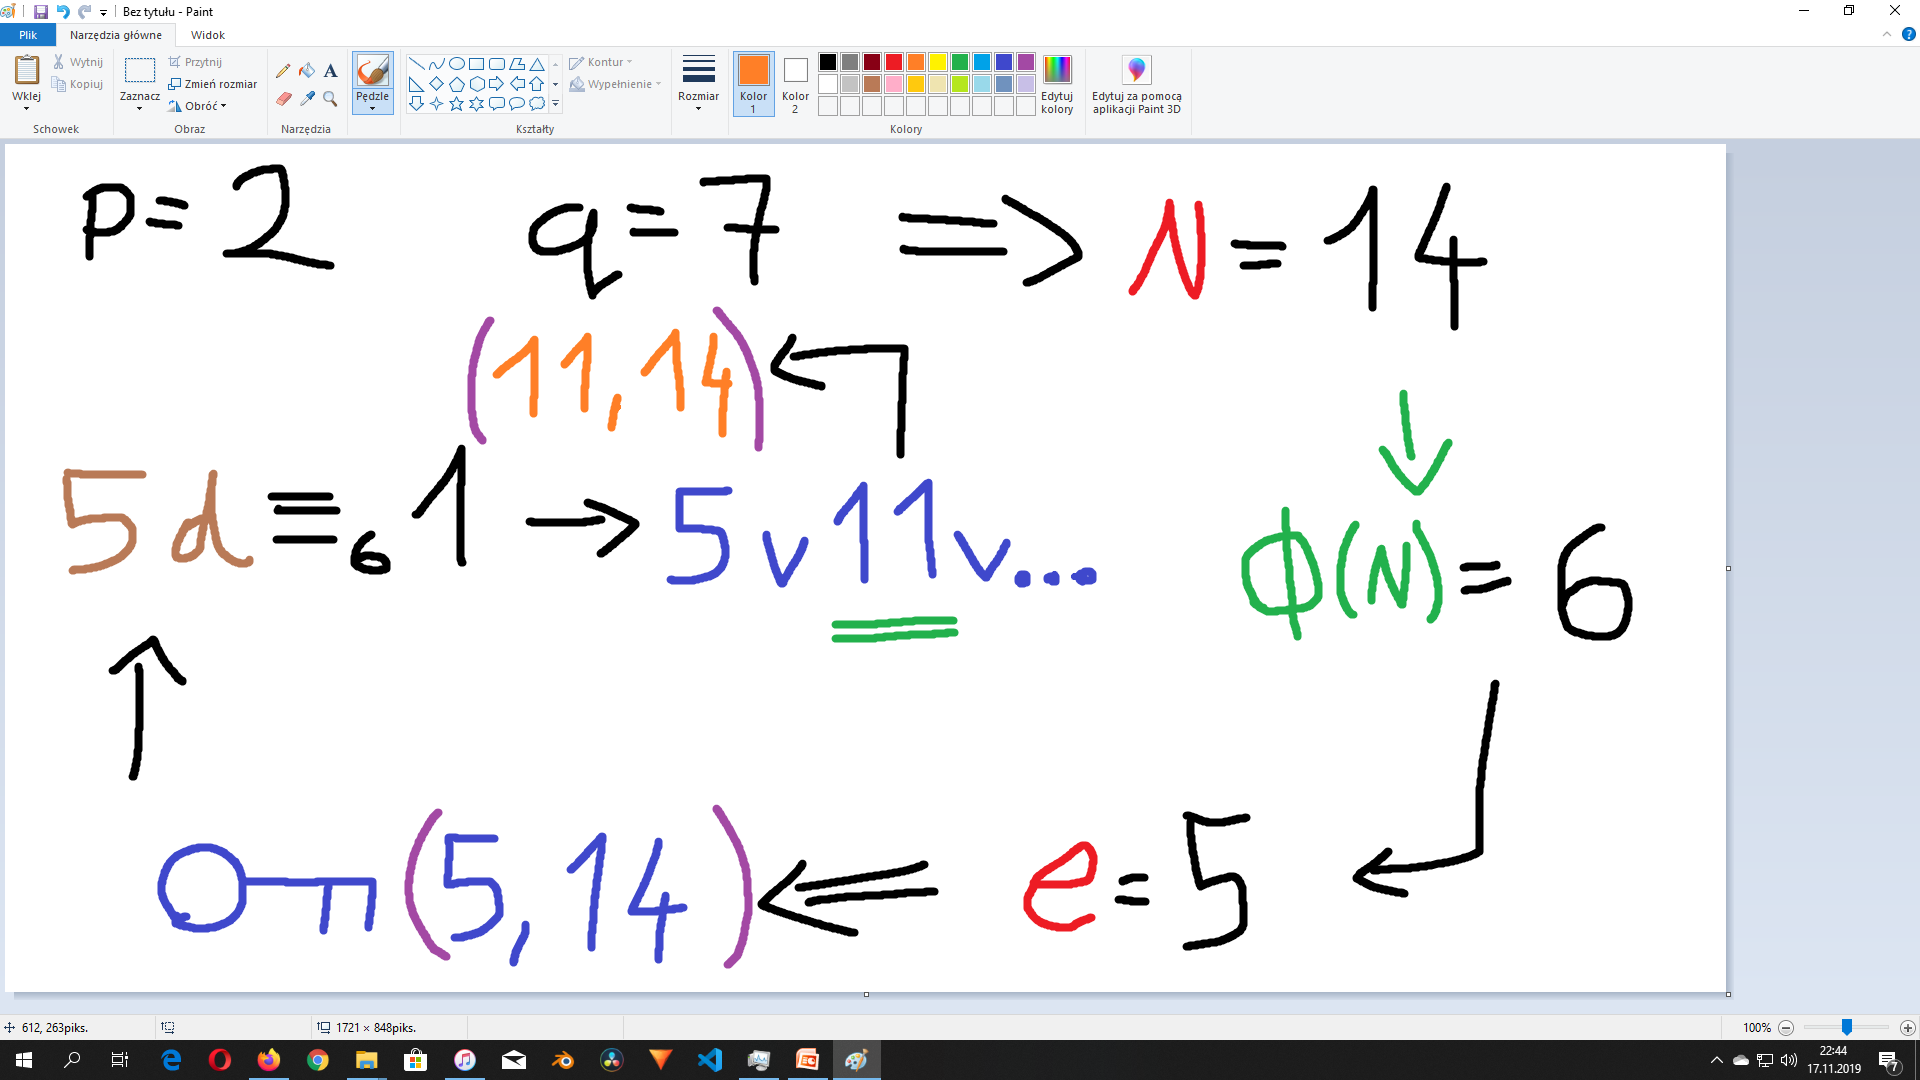 Bez tytułu - Paint
Plik Narzędzia główne Widok
Wklej Wytnij Kopiuj
Schowek
Zaznacz Przytnij Zmień rozmiar Obróć
Obraz
A
Narzędzia
Pędzle
Kontur Wypełnienie
Kształty
Rozmiar
Kolor 1 Kolor 2
Edytuj kolory
Kolory
Edytuj za pomocą aplikacji Paint 3D
p = 2 q = 7 => N = 14
(11, 14)
5d ≡₆ 1 → 5 v 11 v ...
ϕ(N) = 6
(5, 14) e = 5
612, 263piks. 1721 × 848piks. 100%
22:44
17.11.2019
7